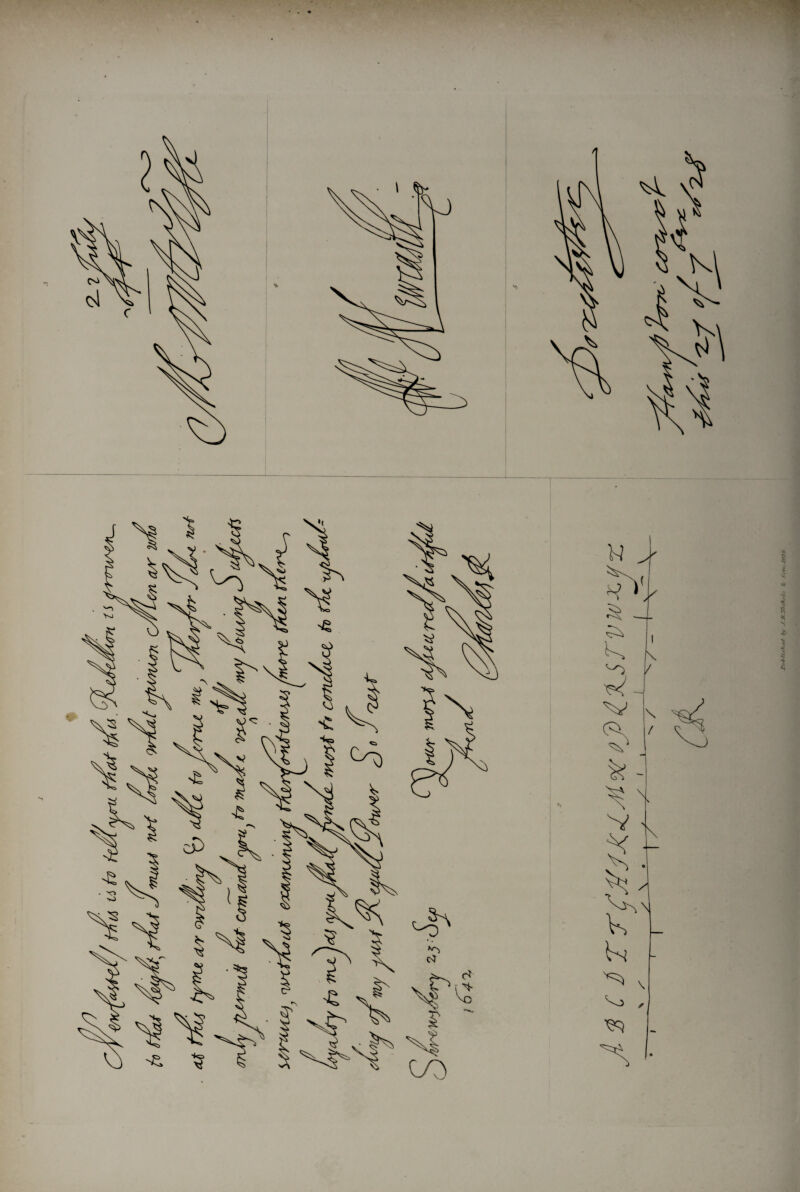 Newcastel this is to tell you that this Rebellion is growen
to that height, that I must not looke what opinion Men ar who
at this tyme ar willing & able to serve me, Therfor I doe not
only permit but comand you, to make use of all my loving Subjects
services, without examining ther Contienses (more then there
loyalty to me) as you shall fynde most to conduce to the uphoul:
ding of my just Regall Power So I rest
Your most asseured faithfull
frend
Charles R
Shrewsbery 23 Sep
1642
A B C D E F G H I K L M N O P Q R S T V W X Y Z
CR
22 July
W Newcastle
Dorchester
Hampton court
this 27 of 7ber 1628